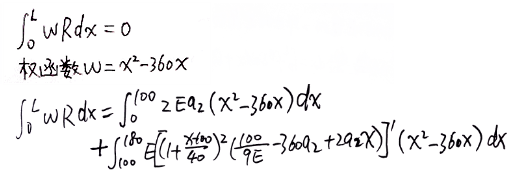 ∫₀ᴸ wRdx = 0
权函数 w = x²-360x
∫₀ᴸ wRdx = ∫₀¹⁰⁰ 2Ea₂(x²-360x)dx
+ ∫₁₀₀¹⁸⁰ E[(1+\frac{x-100}{40})²(\frac{100}{9E}-360a₂+2a₂x)]'(x²-360x)dx